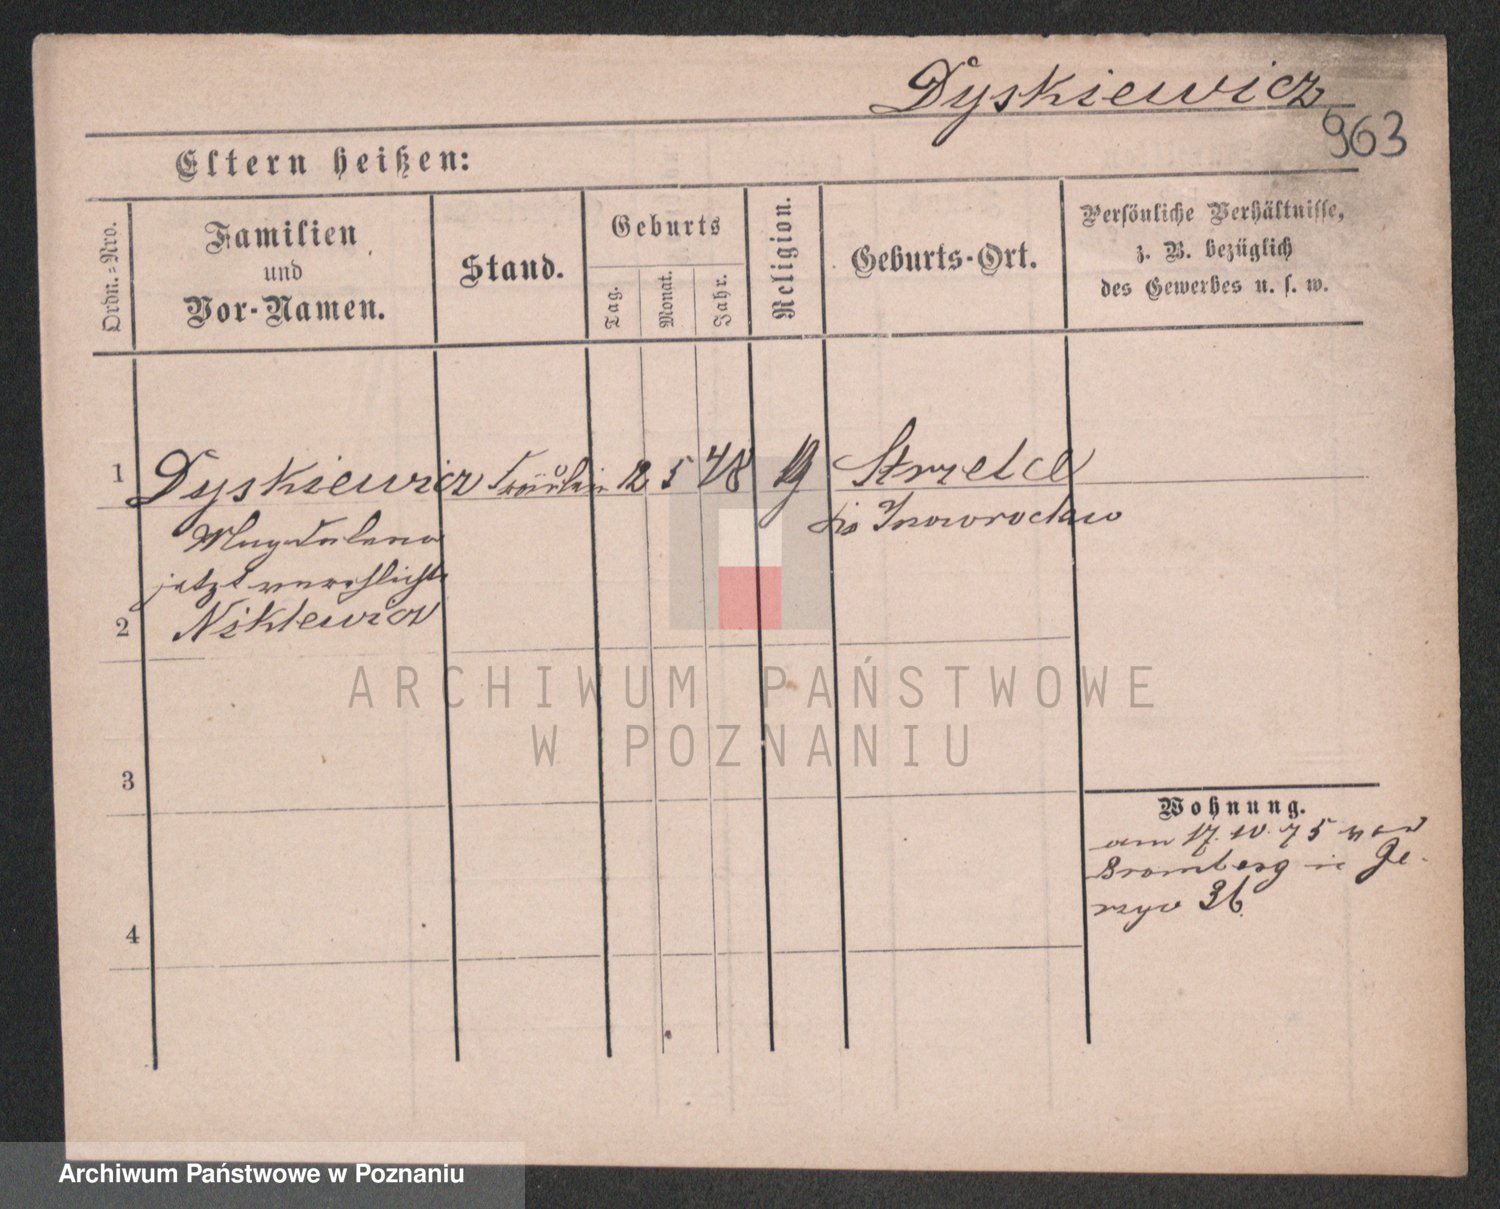 Dyskiewicz
963
Eltern heißen:
Ordn.=Nro.
Familien
und
Vor-Namen.
Stand.
Geburts
Tag.
Monat.
Jahr.
Religion.
Geburts-Ort.
Persönliche Verhältnisse,
z. B. bezüglich
des Gewerbes u. s. w.
1 Dyskiewicz Fräulein 12 5 48 Strzelce
Magdalena Inowroclaw
jetzt verehlicht
2 Niklewicz
3
4
Wohnung.
am 17. 10. 75 von
Bromberg in Je-
rzyce 36.
ARCHIWUM PAŃSTWOWE
W POZNANIU
Archiwum Państwowe w Poznaniu